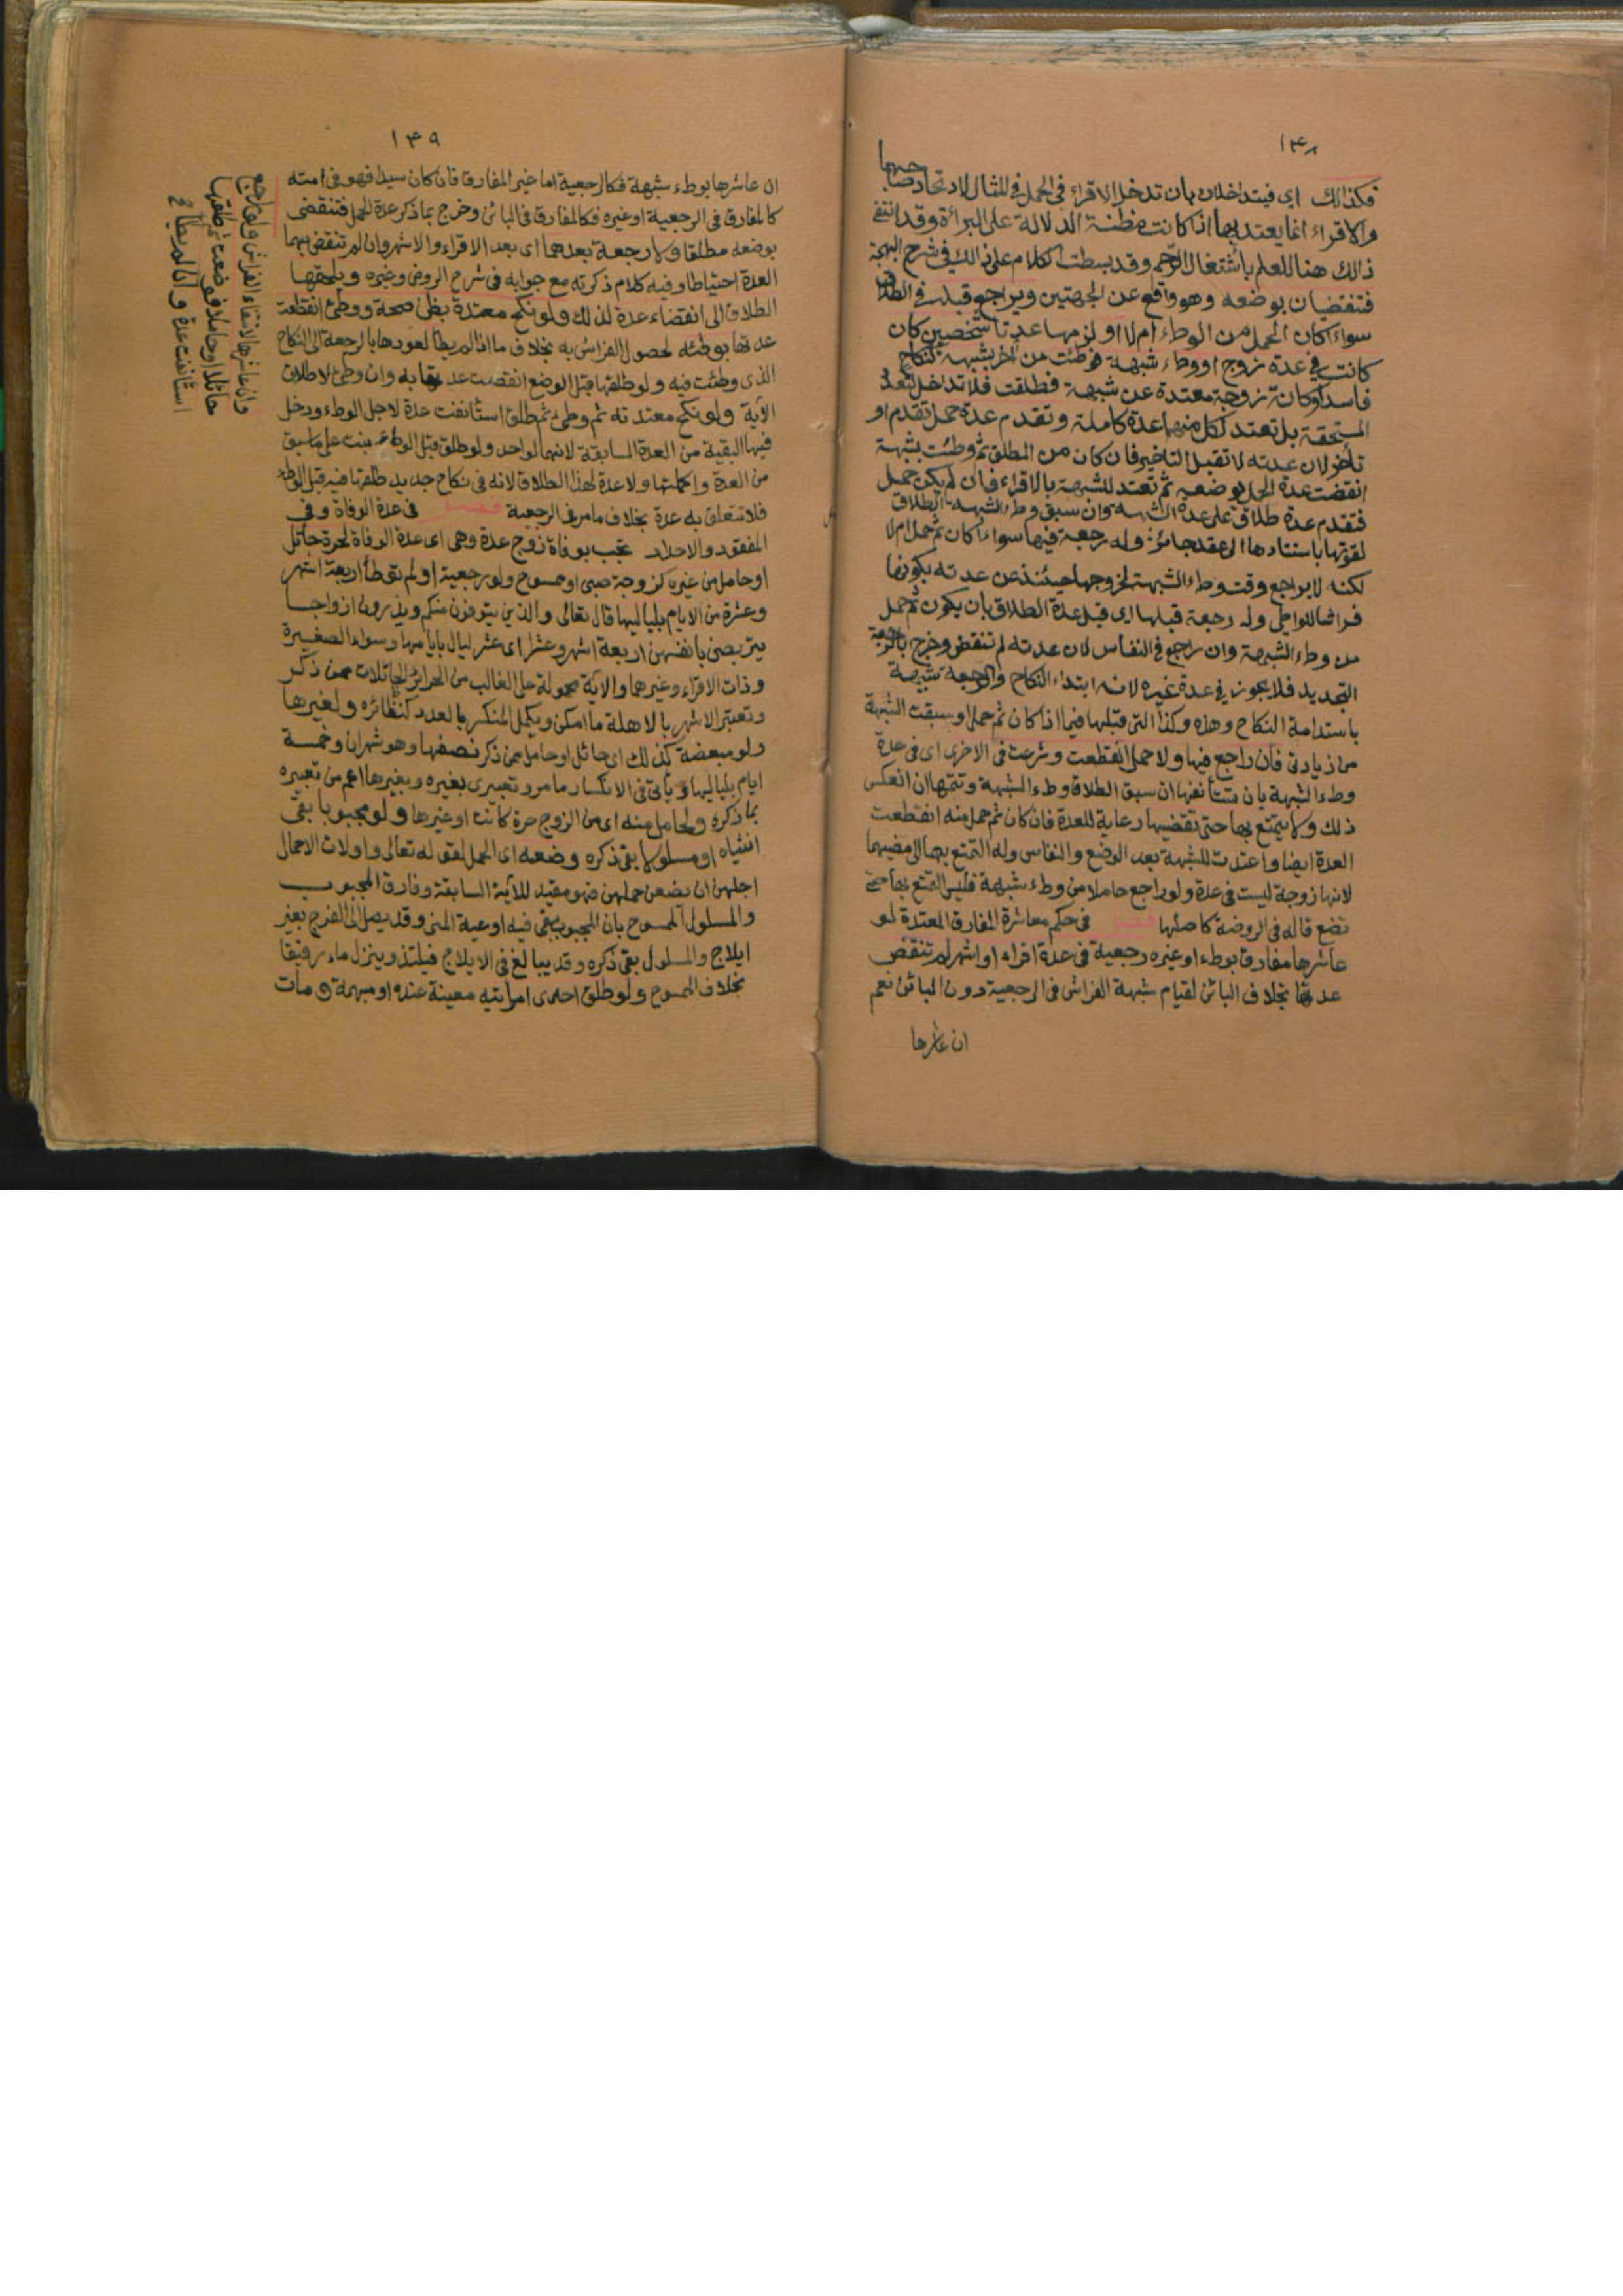 ١٤٨
فكذلك اى فيتداخلان بان تدخل الاقراء فى الحمل فى المثال لاتحاد صاحبها
والاقراء انما يعتد بها اذا كانت مظنة الدلالة على البراءة وقد انتفى
ذالك هنا للعلم باشتغال الرحم وقد بسطت الكلام على ذالك فى شرح البهجة
فتنقضيان بوضعه وهو واقع عن الجهتين ويراجع قبله فى الطلاق
سواء اكان الحمل من الوطء ام لا او لزمها عدتا شخصين كان
كانت فى عدة زوج او وطء شبهة فوطئت من اخر بشبهة كنكاح
فاسد او كانت زوجة معتدة عن شبهة فطلقت فلا تداخل لتعدد
المستحقة بل تعتد لكل منهما عدة كاملة وتقدم عدة حمل تقدم او
تأخر لان عدته لا تقبل التاخير فان كان من المطلق ثم وطئت بشبهة
انقضت عدة الحمل بوضعه ثم تعتد للشبهة بالاقراء فان لم يكن حمل
فتقدم عدة طلاق على عدة الشبهة وان سبق وطء الشبهة الطلاق
لقوتها باستنادها الى عقد جائز وله رجعة فيها سواء اكان ثم حمل ام لا
لكنه لا يراجع وقت وطء الشبهة لخروجها حينئذ عن عدته بكونها
فراشا للواطى وله رجعة قبلها اى قبل عدة الطلاق بان يكون ثم حمل
من وطء الشبهة وان راجع فى النفاس لان عدته لم تنقض وخرج بالرجعة
التجديد فلا يجوز فى عدة غيره لانه ابتداء النكاح والرجعة شبيهة
باستدامة النكاح وهذه وكذا التى قبلها فيما اذا كان ثم حمل او سبقت الشبهة
من زيادتى فان راجع فيها ولا حمل انقطعت وشرعت فى الاخرى اى فى عدة
وطء الشبهة بان تستأنفها ان سبق الطلاق وطء الشبهة وتتمها ان انعكس
ذلك ولا يتمتع بها حتى تقضيها رعاية للعدة فان كان ثم حمل منه انقطعت
العدة ايضا واعتدت للشبهة بعد الوضع والنفاس وله التمتع بها الى مضيهما
لانها زوجة ليست فى عدة ولو راجع حاملا من وطء شبهة فليس التمتع بها حتى
تضع قاله فى الروضة كاصلها فصل فى حكم معاشرة المفارق المعتدة لو
عاشرها مفارق بوطء او غيره رجعية فى عدة اقراء او اشهر لم تنقض
عدتها بخلاف البائن لقيام شبهة الفراش فى الرجعية دون البائن نعم
ان عاشرها
١٤٩
ان عاشرها بوطء شبهة فكالرجعية اما غير المفارق فان كان سيدا فهو فى امته
كالمفارق فى الرجعية او غيره فكالمفارق فى البائن وخرج بما ذكر عدة الحمل فتنقضى
بوضعه مطلقا ولا رجعة بعدهما اى بعد الاقراء والاشهر وان لم تنقض بهما
العدة احتياطا وفيه كلام ذكرته مع جوابه فى شرح الروض وغيره ويلحقها
الطلاق الى انقضاء عدة لذلك ولو نكح معتدة بظن صحة ووطئ انقطعت
عدتها بوطئه لحصول الفراش به بخلاف ما اذا لم يطأ لعودها بالرجعة الى النكاح
الذى وطئت فيه ولو طلقها قبل الوضع انقضت عدتها به وان وطئ لاطلاق
الآية ولو نكح معتدته ثم وطئ ثم طلق استأنفت عدة لاجل الوطء ودخل
فيها البقية من العدة السابقة لانهما لواحد ولو طلق قبل الوطء بنت على ما سبق
من العدة واكملتها ولا عدة لهذا الطلاق لانه فى نكاح جديد طلقها فيه قبل الوطء
فلا تتعلق به عدة بخلاف ما مر فى الرجعية فصل فى عدة الوفاة وفى
المفقود والاحداد تجب بوفاة زوج عدة وهى اى عدة الوفاة لحرة حائل
او حامل من غيره كزوجة صبى او ممسوح ولو رجعية او لم توطأ اربعة اشهر
وعشرة من الايام بلياليها قال تعالى والذين يتوفون منكم ويذرون ازواجا
يتربصن بانفسهن اربعة اشهر وعشرا اى عشر ليال بايامها وسواء الصغيرة
وذات الاقراء وغيرهما والآية محمولة على الغالب من الحرائر الحائلات ممن ذكر
وتعتبر الاشهر بالاهلة ما امكن ويكمل المنكسر بالعدد كنظائره ولغيرها
ولو مبعضة كذلك اى حائل او حامل ممن ذكر نصفها وهو شهران وخمسة
ايام بلياليها ويأتى فى الانكسار ما مر وتعبيرى بغيره وبغيرها اعم من تعبيره
بما ذكره ولحامل منه اى من الزوج حرة كانت او غيرها ولو مجبوبا بقى
انثياه او مسلولا بقى ذكره وضعه اى الحمل لقوله تعالى واولات الاحمال
اجلهن ان يضعن حملهن فهو مقيد للآية السابقة وفارق المجبوب
والمسلول الممسوح بان المجبوب بقى فيه اوعية المنى وقد يصل الى الفرج بغير
ايلاج والمسلول بقى ذكره وقد يبالغ فى الايلاج فيلتذ وينزل ماء رقيقا
بخلاف الممسوح ولو طلق احدى امرأتيه معينة عنده او مبهمة ومات
وان عاشرها لانتفاء الفراش ولو راجع
حائلا او حاملا فوضعت ثم طلقها
استأنفت عدة وان لم يطأ